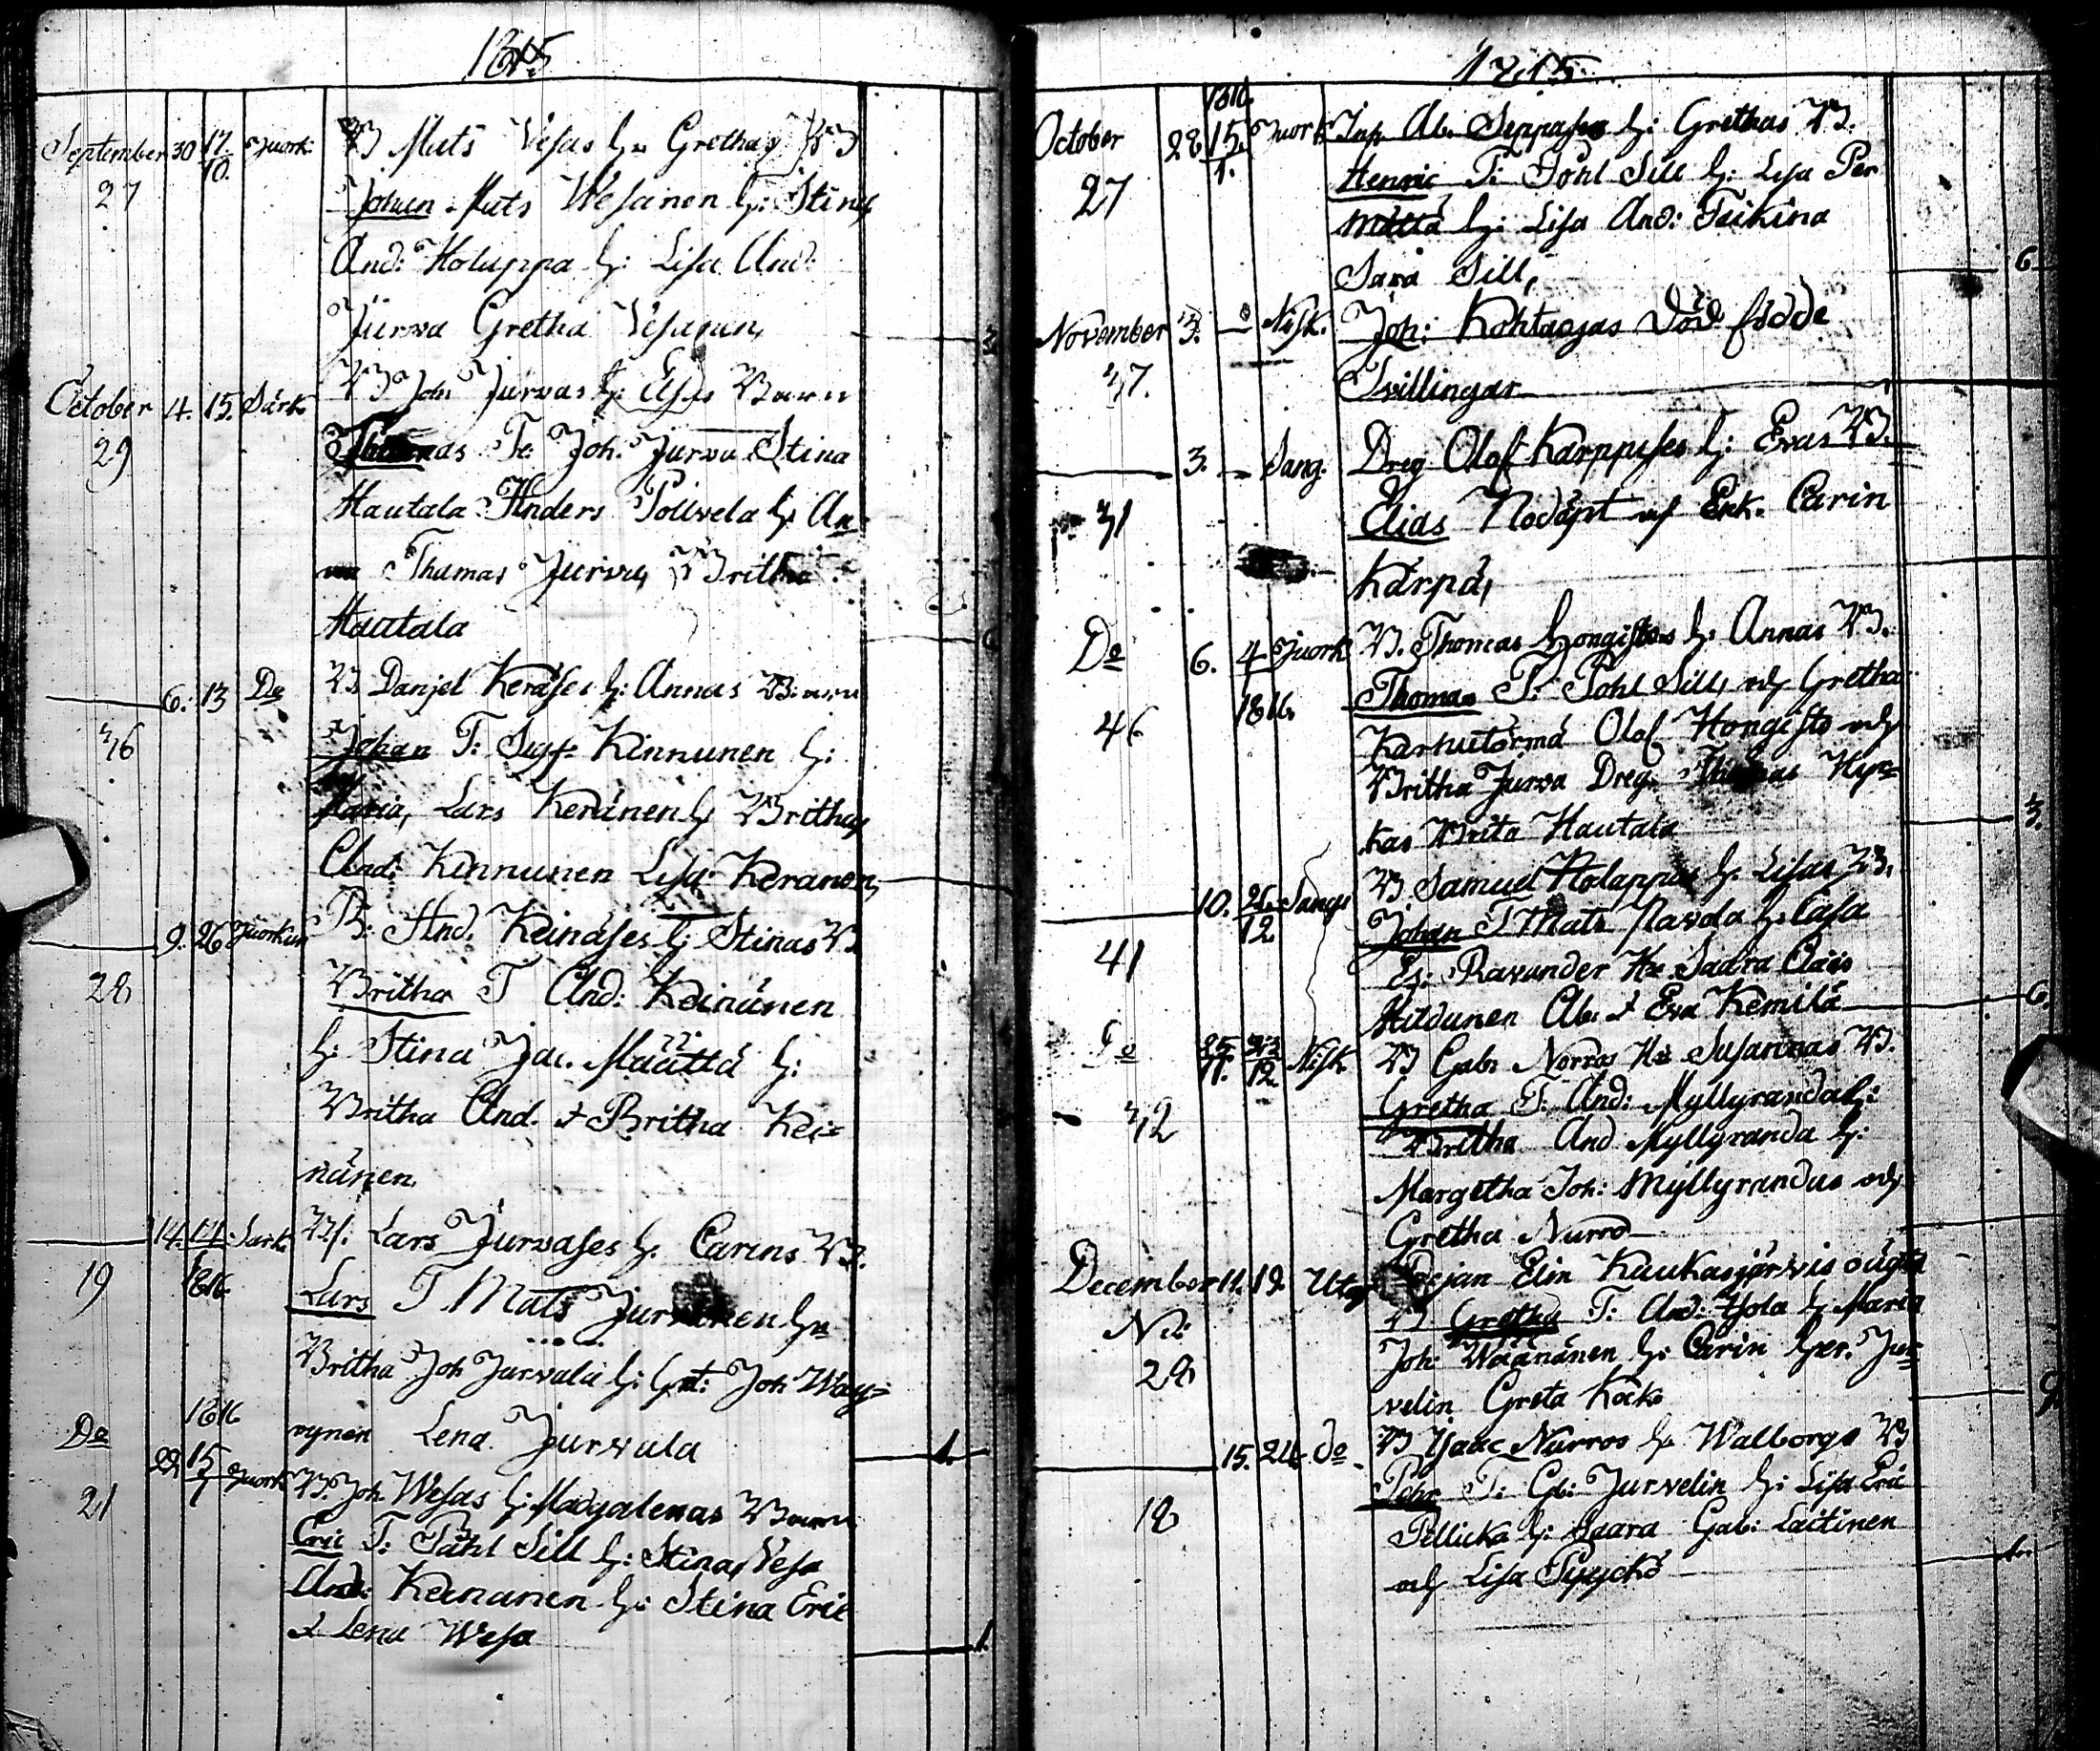 1815
September 30 17/10 Juork: B Mats Vesas h: Grethas B
27 Johan Mats Wesainen h: Stina
And: Holappa h: Lisa And:
Jurva Gretha Vesainen, 3
October 4. 15. Särk B Joh Jurvas h: Elsas Barn
29 Thomas T: Joh. Jurva Stina
Hautala Anders h: An
na Thomas Jurva, Britha
Hautala 6
6. 13 Do B Danjel Keräses h: Annas Barn
36 Johan T: Kinnunen h:
Maria, Lars Keränen h: Britha,
And: Kinnunen Lisa Keränen,
9. 26 Juorkun B: And. Keinäses h: Stinas B.
28 Britha T And: Keinänen
h: Stina Jac. Määttä h:
Britha And. & Britha Kei=
nänen
14. 14 Särk. Lars Jurvases h. Carins B.
19 1816. Lars T. Mats Jurvainen h:
Britha Joh Jurvala h: Joh Wäy=
1816 rynen Lena Jurvala 1.
Do 22 15/1 Juork B. Joh Wesas h: Magdalenas Barn
21 Eric T: Påhl Sill h: Stina, Vesa
And: Keinänen h: Stina Eric
& Lena Wesa 1.
1815.
1816.
October 28 15/1. Juork Ab. Seppäses h: Grethas B.
27 Henric T: Pohl Sill h: Lisa Per
h: Lisa And: Teikina
Sara Sill, 6
November 3. — Nisk. Joh: Kohtasjas död födde
37. Tvillingar
3. — Sang. Dreg Olof Karppises h: Evas B.
31 Elias Nödöpt af Enk. Carin
Kärpä,
Do 6. 4 Juork B. Thomas Hongistos h: Annas B.
1816. Thomas T: Pohl Sill, och Gretha
46 Karhutörmä Olof Hongisto och
Britha Jurva Dreg. Thomas Hyr=
kas Brita Hautala 3.
10. 26/12 Sangi B. Samuel Holappas h: Lisas B.
41 Johan T Mats Ravola h: Caisa
Ravander H: Saara Claes
Hildunen Ab. & Eva Kemilä 6.
Do 25/11. 23/12 Nisk B Gab: Norros H: Susannas B.
32 Gretha T: And: Myllyranda h:
Britha And Myllyranda h:
Margetha Joh: Myllyrandus och
Gretha Nurro
December 11. 19. Utaj Pejan Elin Kaukasjärvis oägta
N.B. B Gretha T: And: h: Maria
Joh: Wäänänen h: Carin Jur=
28 velin Greta Kock 9
15. 24 do B Isaac Nurros h: Walborgs B
18 Pehr T: Gb: Jurvelin h: Lisa Eric
Pellicka h: Saara Gab: Laitinen
och Lisa Pyyckö 1.